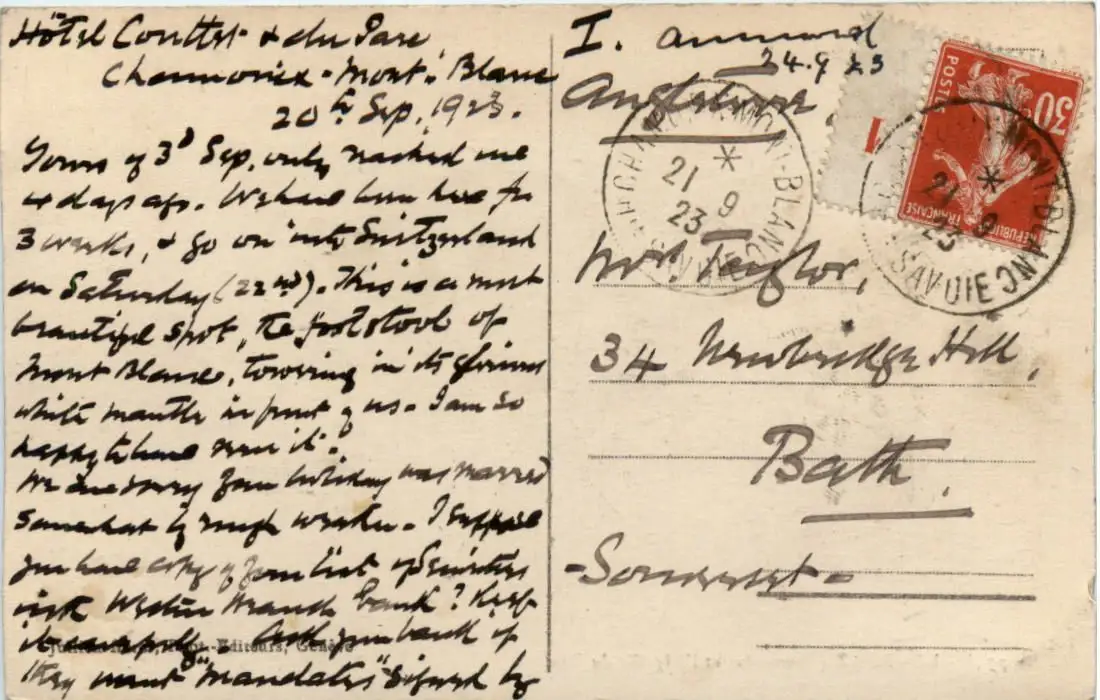 Hôtel Couttet & du Parc,
Chamonix - Mont. Blanc
20th Sep, 1923.
Yours of 3d Sep. only reached me
days ago. We have been here for
3 weeks, & go on into Switzerland
on Saturday (22nd). This is a most
beautiful spot, the footstool of
Mont Blanc, towering in its glorious
white mantle in front of us - I am so
happy to have seen it.
We are sorry your holiday was marred
somewhat by rough weather - I suppose
you have copy of your list of Securities
with Weston branch bank? Keep
it carefully. Ask your bank if
they want "mandates" signed by
Editeurs, Genève
I. answered
24.9 23
Angleterre
CHAMONIX-MONT-BLANC
* 21 9 23
Hte SAVOIE
1
POSTES
30c
REPUBLIQUE FRANCAISE
MONT-BLANC
* 21 9 23
SAVOIE
Mrs Taylor,
34 Newbridge Hill,
Bath.
- Somerset -